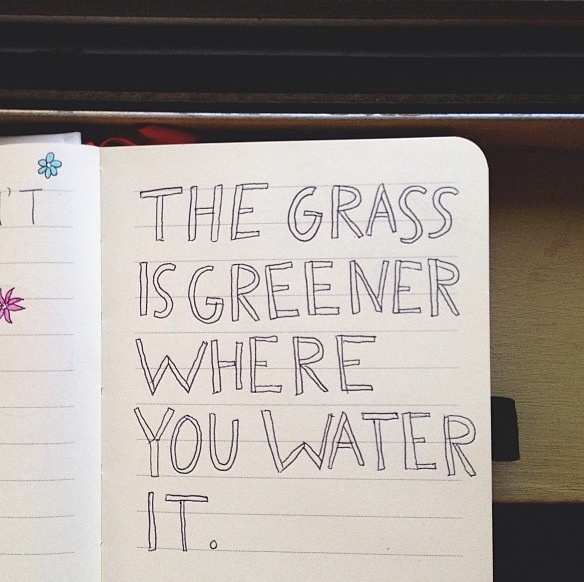 THE GRASS
IS GREENER
WHERE
YOU WATER
IT.